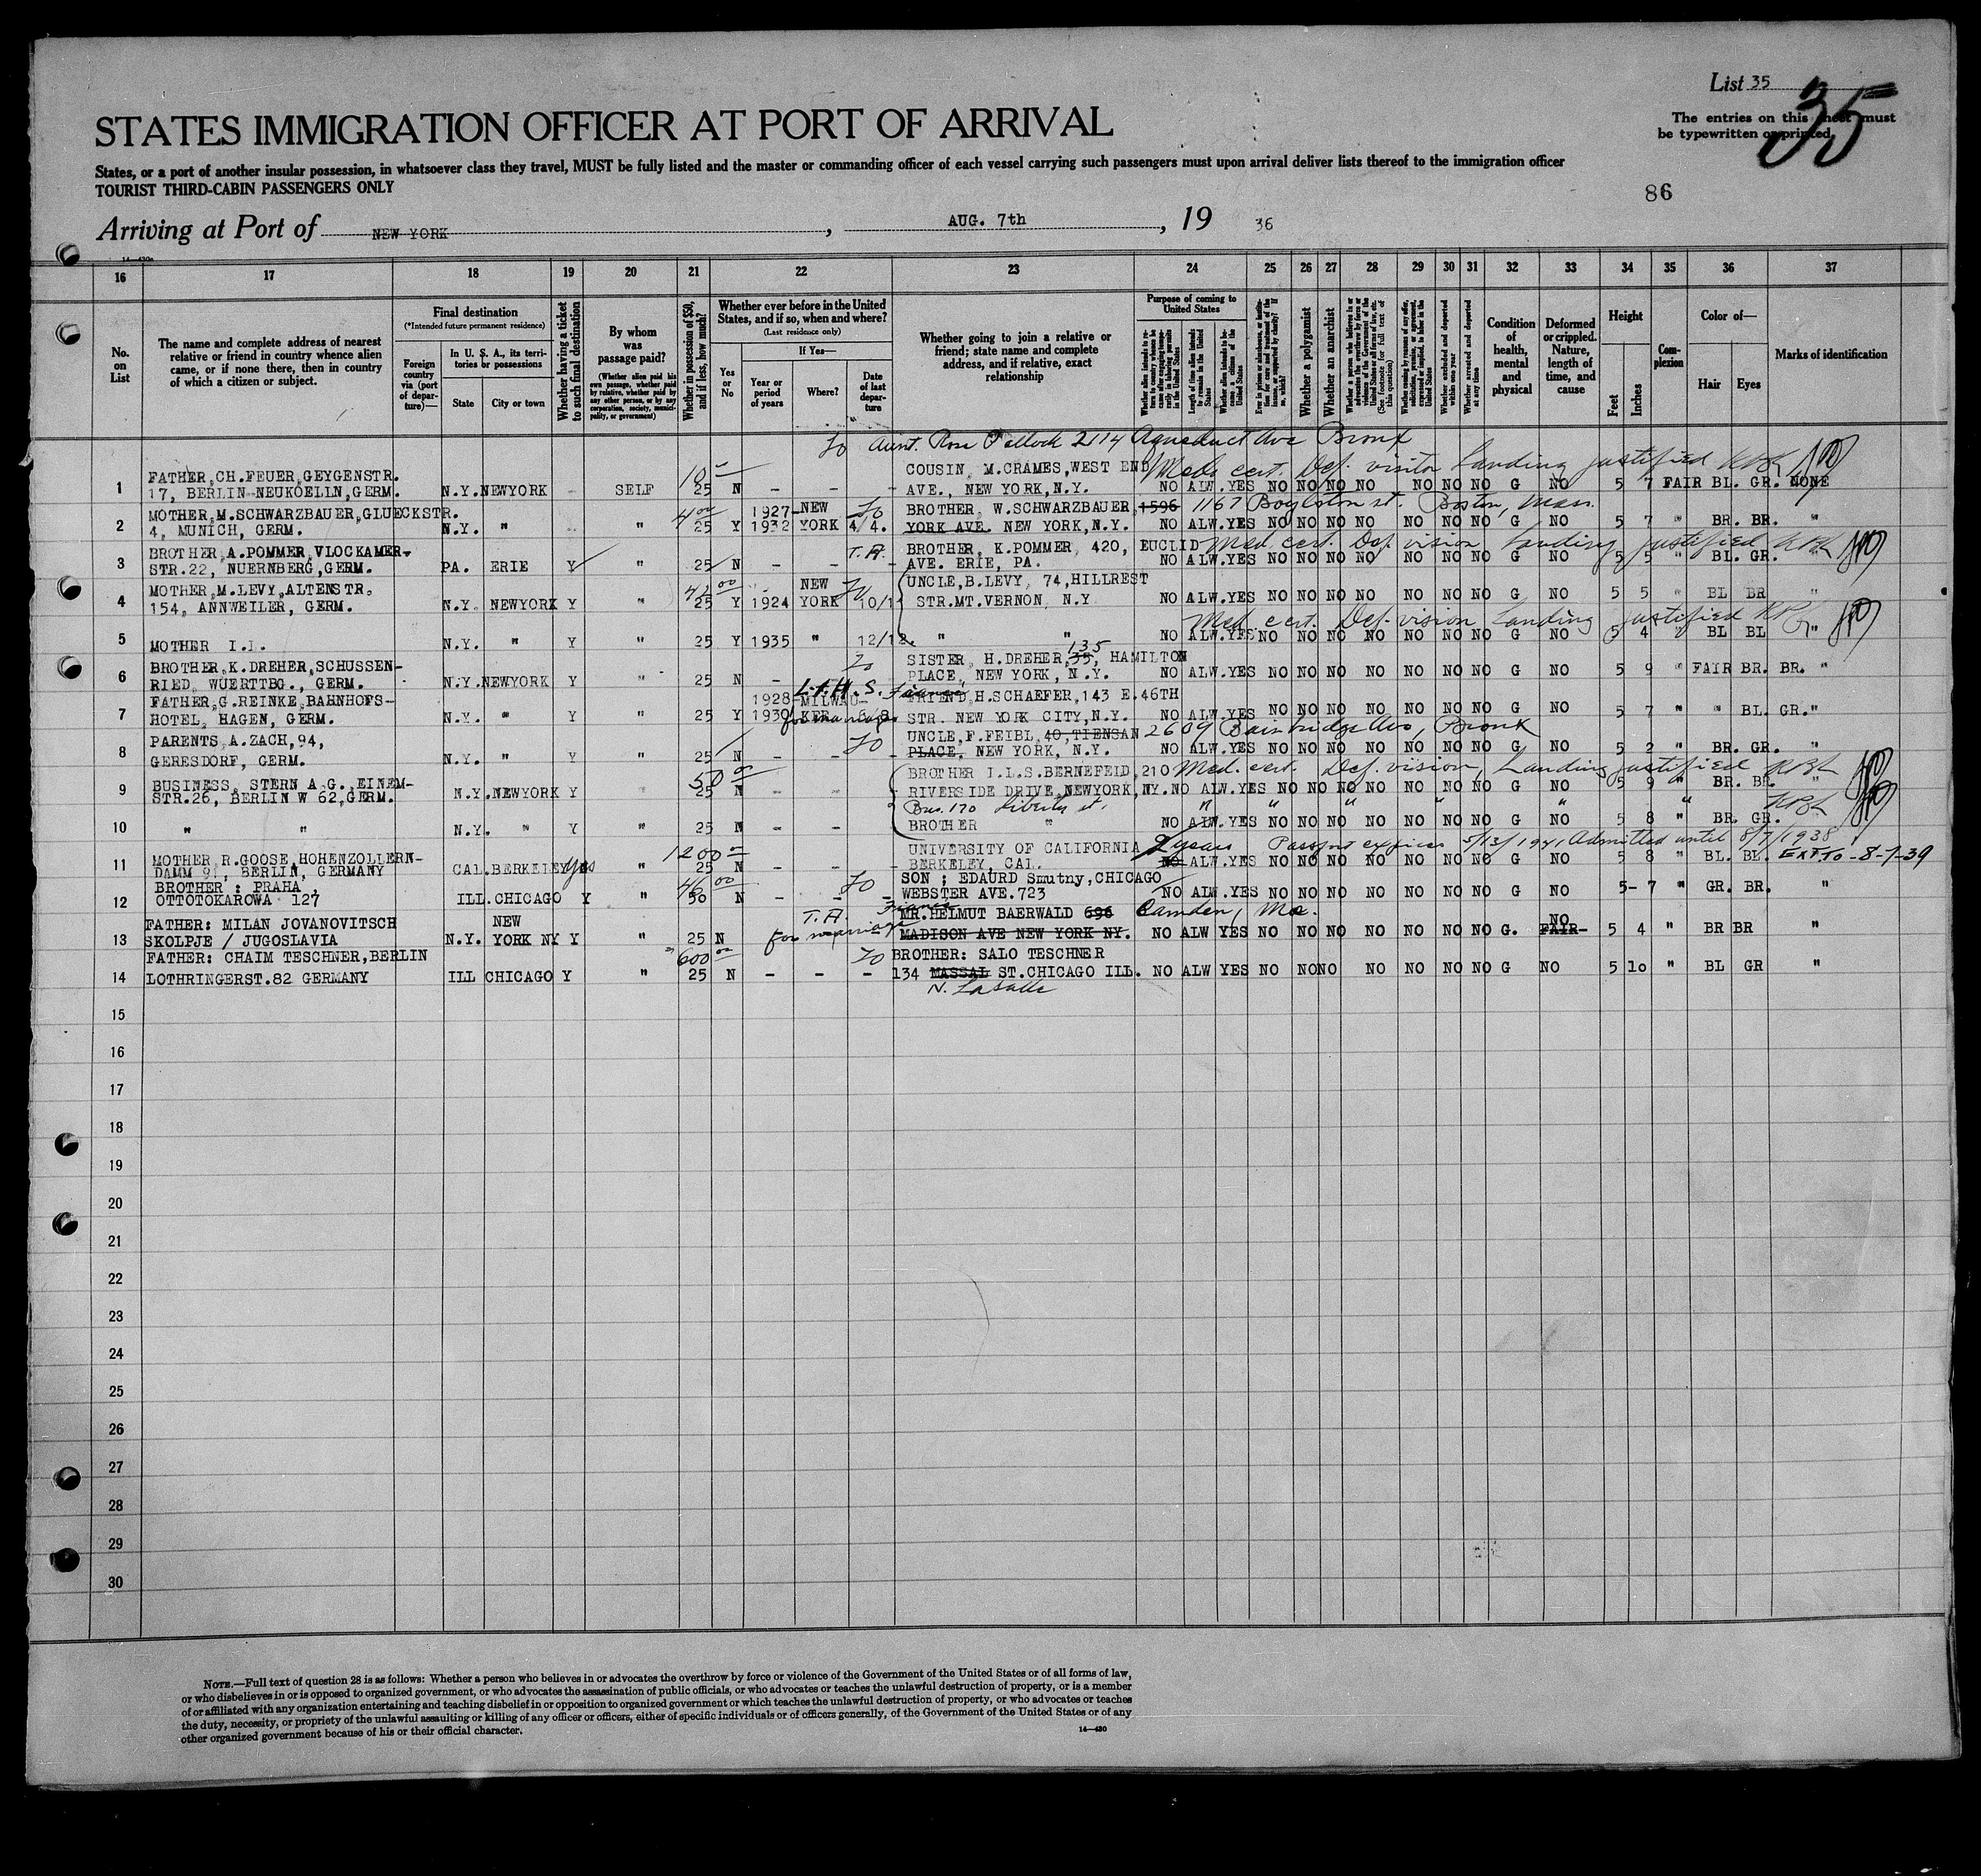 List 35
35
STATES IMMIGRATION OFFICER AT PORT OF ARRIVAL
The entries on this sheet must
be typewritten or printed.
States, or a port of another insular possession, in whatsoever class they travel, MUST be fully listed and the master or commanding officer of each vessel carrying such passengers must upon arrival deliver lists thereof to the immigration officer
TOURIST THIRD-CABIN PASSENGERS ONLY
86
Arriving at Port of NEW YORK, AUG. 7th, 19 36
16 17 18 19 20 21 22 23 24 25 26 27 28 29 30 31 32 33 34 35 36 37
No. on List
The name and complete address of nearest relative or friend in country whence alien came, or if none there, then in country of which a citizen or subject.
Final destination
(*Intended future permanent residence)
Foreign country via (port of departure)—
In U. S. A., its territories or possessions
State City or town
Whether having a ticket to such final destination
By whom was passage paid?
(Whether alien paid his own passage, whether paid by relative, whether paid by any other person, or by any corporation, society, municipality, or government)
Whether in possession of $50, and if less, how much?
Whether ever before in the United States, and if so, when and where?
(Last residence only)
Yes or No
If Yes—
Year or period of years
Where?
Date of last departure
Whether going to join a relative or friend; state name and complete address, and if relative, exact relationship
Purpose of coming to United States
Whether a polygamist
Whether an anarchist
Condition of health, mental and physical
Deformed or crippled. Nature, length of time, and cause
Height
Feet Inches
Complexion
Color of—
Hair Eyes
Marks of identification
to Aunt. Rose Pollock 2114 Aqueduct Ave Bronx
FATHER, CH. FEUER, GEYGENSTR. 10 COUSIN, M.CRAMES, WEST END Med. cert. Def. vision Landing justified
1 17, BERLIN-NEUKOELLN, GERM. N.Y. NEWYORK - SELF 25 N - - - AVE., NEW YORK, N.Y. NO ALW. YES NO NO NO NO NO NO NO G NO 5 7 FAIR BL. GR. NONE
MOTHER, M. SCHWARZBAUER, GLUECKSTR. 1927- NEW BROTHER, W. SCHWARZBAUER, 1596 1167 Boylston st. Boston, Mass.
2 4, MUNICH, GERM. N.Y. " " 25 Y 1932 YORK 4/4. YORK AVE. NEW YORK, N.Y. NO ALW. YES NO NO NO NO NO NO NO G NO 5 7 " BR. BR. "
BROTHER, A. POMMER, VLOCKAMER- T.A. BROTHER, K. POMMER, 420, EUCLID Med. cert. Def. vision Landing justified
3 STR. 22, NUERNBERG, GERM. PA. ERIE Y " 25 N - - - AVE. ERIE, PA. NO ALW. YES NO NO NO NO NO NO NO G NO 5 5 " BL. GR. "
MOTHER, M. LEVY, ALTENSTR. NEW UNCLE, B. LEVY, 74, HILLREST
4 154, ANNWEILER, GERM. N.Y. NEWYORK Y " 25 Y 1924 YORK 10/1 STR. MT. VERNON, N.Y NO ALW. YES NO NO NO NO NO NO NO G NO 5 5 " BL BR "
Med. cert. Def. vision Landing justified
5 MOTHER I.I. N.Y. " Y " 25 Y 1935 " 12/12. " " NO ALW. YES NO NO NO NO NO NO NO G NO 5 4 " BL BL "
BROTHER, K. DREHER, SCHUSSEN- SISTER, H. DREHER, 35, 135 HAMILTON
6 RIED, WUERTTBG., GERM. N.Y. NEWYORK Y " 25 N - PLACE, NEW YORK, N.Y. NO ALW. YES NO NO NO NO NO NO NO G NO 5 9 " FAIR BR. BR. "
FATHER, G. REINKE, BAHNHOFS- 1928- MILWAU- Fiance FRIEND, H. SCHAEFER, 143 E. 46TH
7 HOTEL, HAGEN, GERM. N.Y. " Y " 25 Y 1930 KEE for marriage STR. NEW YORK CITY, N.Y. NO ALW. YES NO NO NO NO NO NO NO G NO 5 7 " " BL. GR. "
PARENTS, A. ZACH, 94, to UNCLE, F. FEIBL, 40, TIENSAN 2609 Bainbridge Ave, Bronx
8 GERESDORF, GERM. N.Y. " Y " 25 N - - PLACE, NEW YORK, N.Y. NO ALW. YES NO NO NO NO NO NO NO G NO 5 2 " BR. GR. "
BUSINESS, STERN A.G., EINEM- 50 BROTHER I.L.S. BERNEFEID, 210 Med. cert. Def. vision, Landing justified
9 STR. 26, BERLIN W 62, GERM. N.Y. NEWYORK Y " 25 N - - RIVERSIDE DRIVE, NEWYORK, NY. NO ALW. YES NO NO NO NO NO NO NO G NO 5 9 " BR. BR. "
Bus. 170 Liberty st.
10 " " N.Y. " Y " 25 N - - BROTHER " NO ALW. YES NO NO NO NO NO NO NO G NO 5 8 " BR. GR. "
MOTHER, R. GOOSE, HOHENZOLLERN- 1200 UNIVERSITY OF CALIFORNIA 2 years Passport expires 5/13/1941, Admitted until 8/7/1938
11 DAMM 91, BERLIN, GERMANY CAL. BERKELEY Yes " 25 N BERKELEY, CAL. NO ALW. YES NO NO NO NO NO NO NO G NO 5 8 " BL. BL. EXT TO - 8-7-39
BROTHER : PRAHA, 46 to SON ; EDAURD Smutny, CHICAGO
12 OTTOTOKAROWA 127 ILL. CHICAGO Y " 50 N - - - WEBSTER AVE. 723 NO ALW. YES NO NO NO NO NO NO NO G NO 5- 7 " GR. BR. "
FATHER: MILAN JOVANOVITSCH NEW T.A. Fiance MR. HELMUT BAERWALD 696 Camden, Me. NO
13 SKOLPJE / JUGOSLAVIA N.Y. YORK NY Y " 25 N for marriage MADISON AVE NEW YORK NY. NO ALW YES NO NO NO NO NO NO NO G. FAIR- 5 4 " BR BR "
FATHER: CHAIM TESCHNER, BERLIN 600 to BROTHER: SALO TESCHNER
14 LOTHRINGERST. 82 GERMANY ILL CHICAGO Y " 25 N - - - 134 MASSAL ST. CHICAGO ILL. NO ALW YES NO NO NO NO NO NO NO G NO 5 10 " BL GR "
N. LaSalle
15
16
17
18
19
20
21
22
23
24
25
26
27
28
29
30
NOTE.—Full text of question 28 is as follows: Whether a person who believes in or advocates the overthrow by force or violence of the Government of the United States or of all forms of law,
or who disbelieves in or is opposed to organized government, or who advocates the assassination of public officials, or who advocates or teaches the unlawful destruction of property, or is a member
of or affiliated with any organization entertaining and teaching disbelief in or opposition to organized government or which teaches the unlawful destruction of property, or who advocates or teaches
the duty, necessity, or propriety of the unlawful assaulting or killing of any officer or officers, either of specific individuals or of officers generally, of the Government of the United States or of any
other organized government because of his or their official character.
14—430